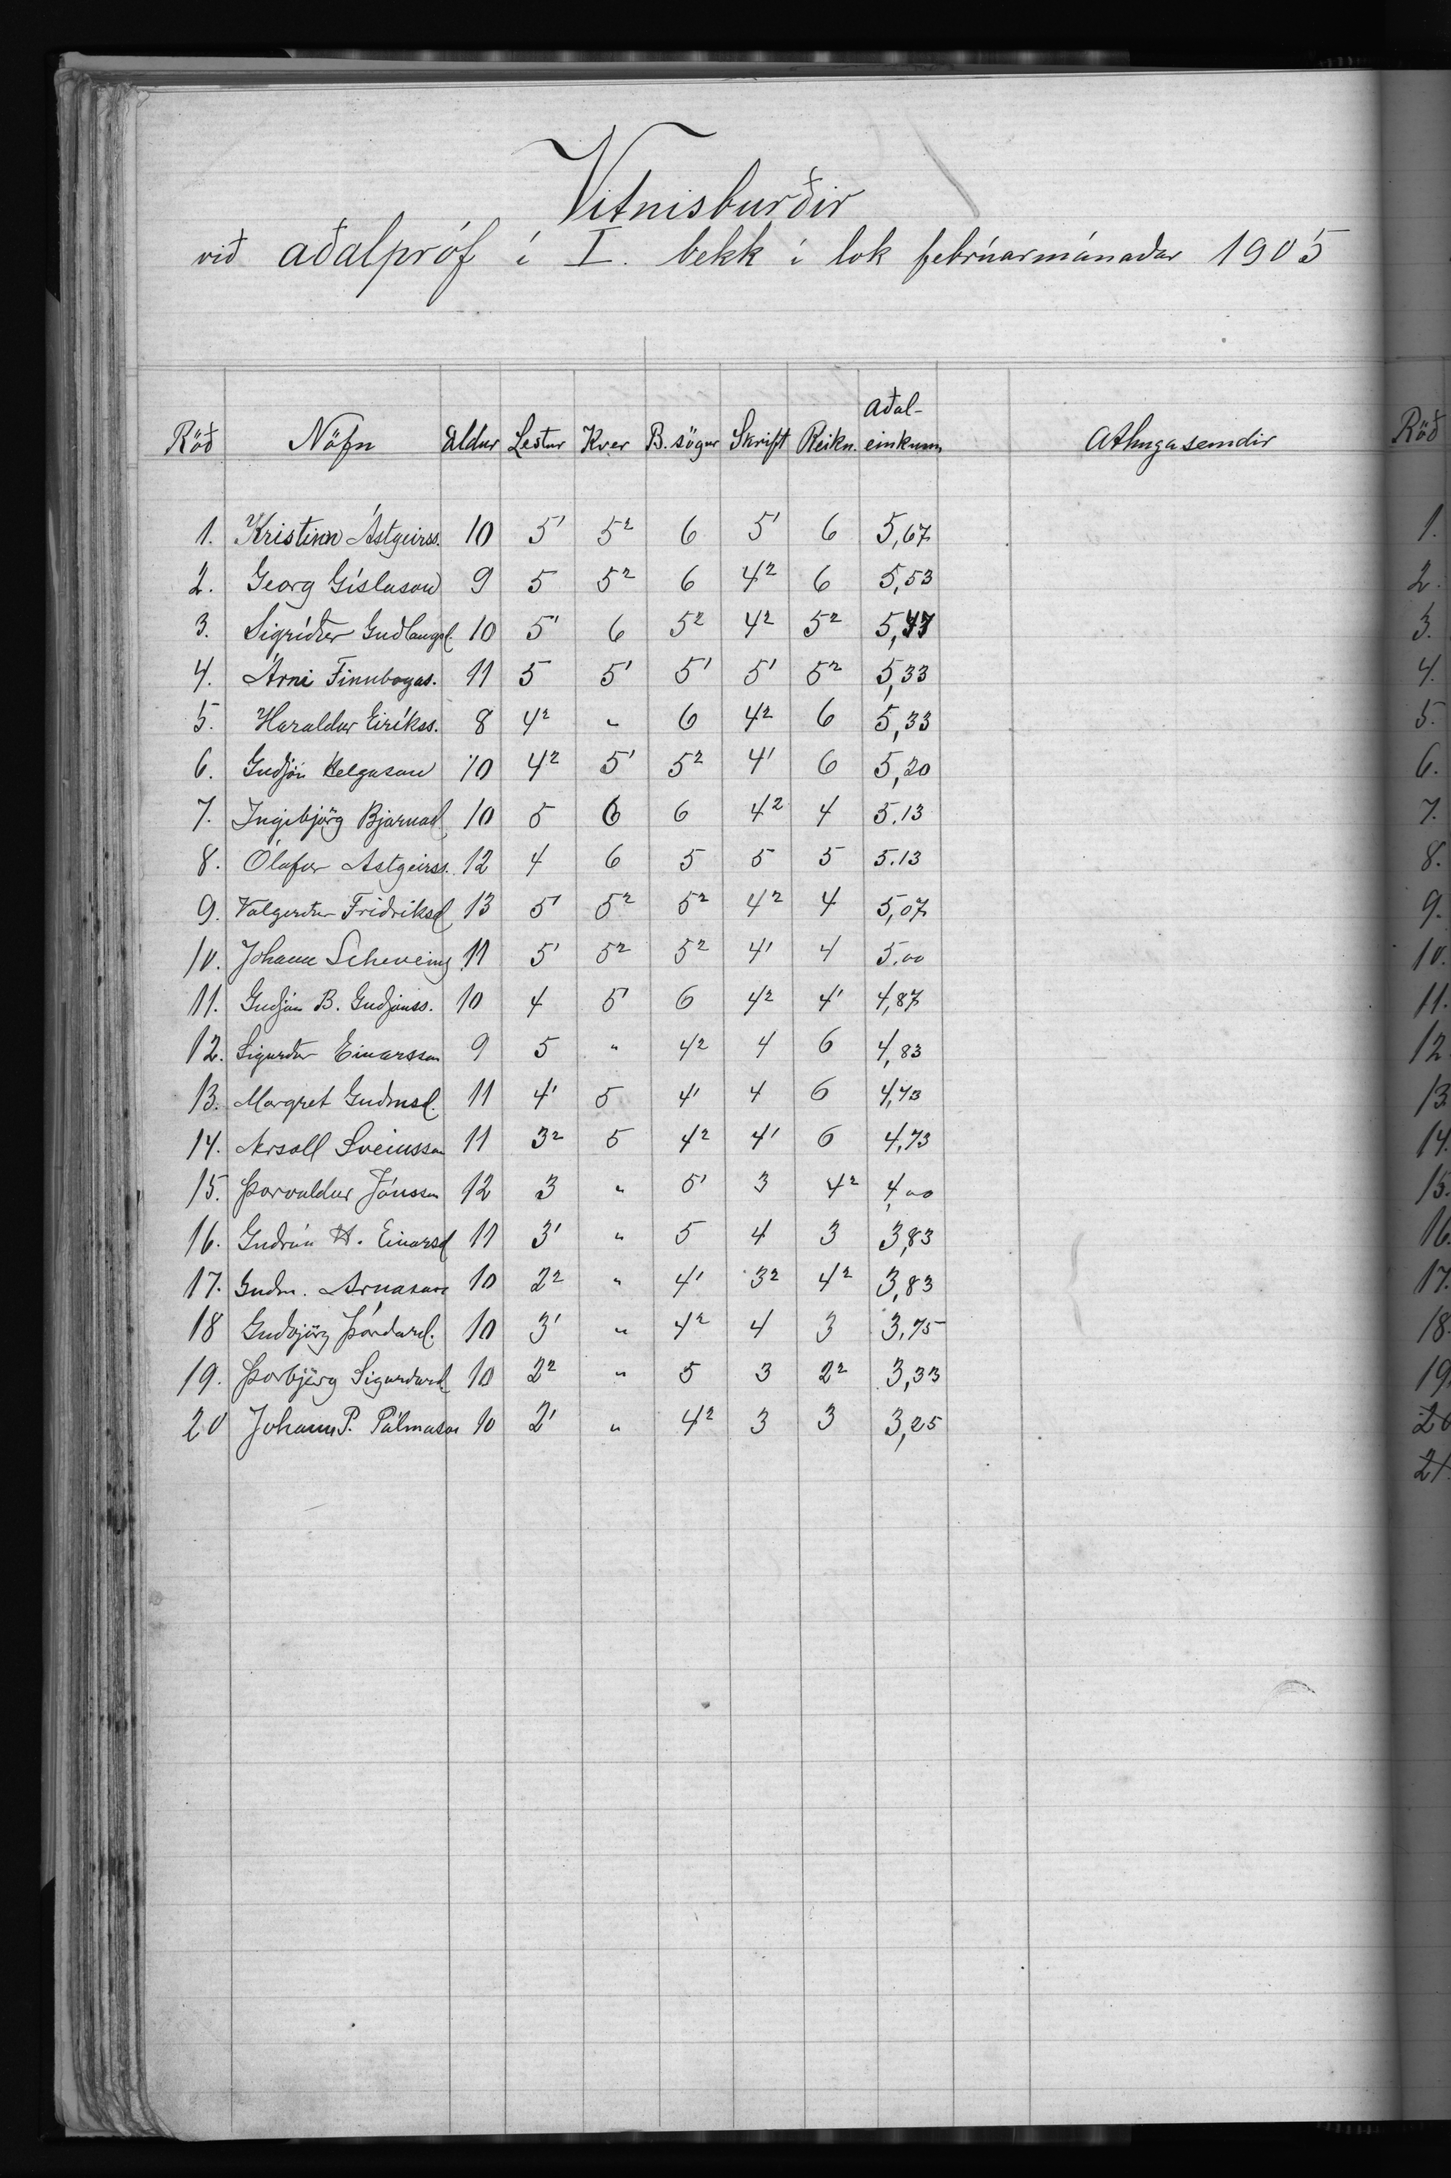 Vitnisburðir
við aðalpróf í I. bekk í lok febrúarmánaðar 1905
Röð Nöfn Aldur Lestur Kver B. sögur Skrift Reikn. Aðal-einkunn Athugasemdir
1. Kristinn Ástgeirss. 10 5¹ 5² 6 5¹ 6 5,67
2. Georg Gíslason 9 5 5² 6 4² 6 5,53
3. Sigríður Guðlaugsd. 10 5¹ 6 5² 4² 5²
4. Árni Finnbogas. 11 5 5¹ 5¹ 5¹ 5² 5,33
5. Haraldur Eiríkss. 8 4² " 6 4² 6 5,33
6. Guðjón Helgason 10 4² 5¹ 5² 4¹ 6 5,20
7. Ingibjörg Bjarnad. 10 5 6 6 4² 4 5.13
8. Ólafur Astgeirss. 12 4 6 5 5 5 5.13
9. Valgerður Friðriksd 13 5¹ 5² 5² 4² 4 5,07
10. Johann Scheving 11 5¹ 5² 5² 4¹ 4 5.00
11. Guðjón B. Guðjónss. 10 4 5¹ 6 4² 4¹ 4,87
12. Sigurður Einarsson 9 5 " 4² 4 6 4,83
13. Margret Guðmsd. 11 4¹ 5 4¹ 4 6 4,73
14. Ársæll Sveinsson 11 3² 5 4² 4¹ 6 4,73
15. Þorvaldur Jónsson 12 3 " 5¹ 3 4² 4,00
16. Guðrún H. Einarsd 11 3¹ " 5 4 3 3,83
17. Guðm. Árnason 10 2² " 4¹ 3² 4² 3,83
18 Guðbjörg Þórðard. 10 3¹ " 4² 4 3 3,75
19. Þorbjörg Sigurðard. 10 2² " 5 3 2² 3,33
20 Johann P. Pálmason 10 2¹ " 4² 3 3 3,25
Röð
1.
2.
3.
4.
5.
6.
7.
8.
9.
10.
11.
12
13
14.
15.
16.
17.
18
19
20
21.